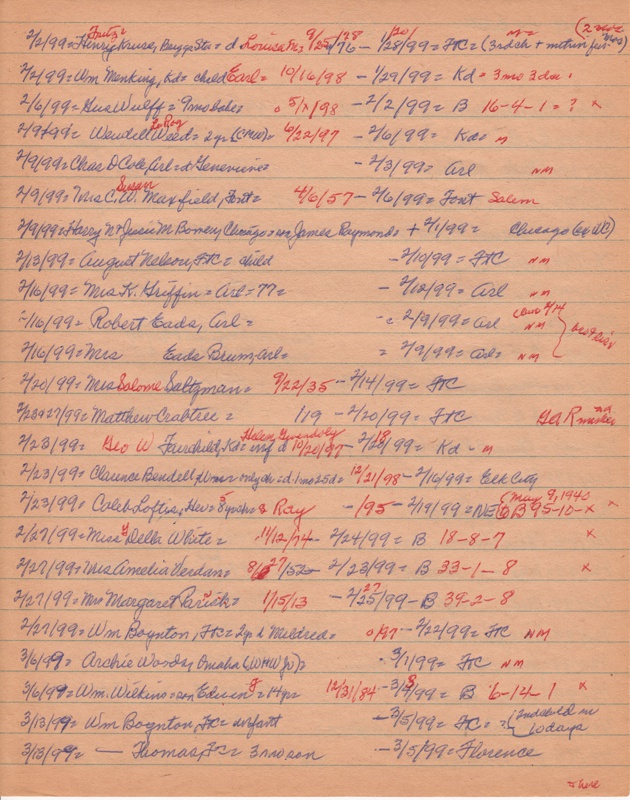 2/2/99 = Henry Kruse, Briggs Sta = d Louisa M = 9/25/76 - 1/28/99 = FtC = (3rd sh +
2/2/99 = Wm Menking, Kd = child Earl = 10/16/98 - 1/29/99 = Kd = 3mo 3da
2/6/99 = Gus Wulff = 9mo babe = 5/ /98 - 2/2/99 = B 16-4-1 = ? x
2/9/99 = Wendell Weed = 2yr (CMW) = 6/22/97 - 2/6/99 = Kd = m
2/9/99 = Chas D Cole, Arl = d Genevieve = - 2/3/99 = Arl NM
2/9/99 = Mrs C. W. Susan Maxfield, Font = 4/6/57 - 2/6/99 = Font Salem
2/9/99 = Harry N + Jessie M Bowers, Chicago = son James Raymond = + 2/1/99 = Chicago
2/13/99 = August Nelson, FtC = child - 2/10/99 = FtC NM
2/16/99 = Mrs K. Griffin = Arl = 77 = - 2/12/99 = Arl NM
2/16/99 = Robert Eads, Arl = = 2/9/99 = Arl NM
2/16/99 = Mrs Eads Brum, Arl = = 2/9/99 = Arl = NM
2/20/99 = Mrs Salome Saltzman = 9/22/35 - 2/14/99 = FtC
2/23 + 27/99 = Matthew Crabtree = 1/19 - 2/20/99 = FtC GAR marker
2/23/99 = Geo W Fairchild, Kd = inf d Helen 10/20/97 - 2/18/99 = Kd - m
2/23/99 = Clarence Bendell + Wm = only dr = d 1mo 25d = 12/21/98 - 2/16/99 = Elk City
2/23/99 = Caleb Loftis, = Ray - /95 - 2/19/99 = NE B 95-10- x (May 9, 1940
2/27/99 = Miss Della White = 11/12/74 - 2/24/99 = B 18-8-7 x
2/27/99 = Mrs Amelia Verdan = 8/27/52 - 2/23/99 = B 33-1-8 x
2/27/99 = Mrs Margaret Parish = 1/15/13 - 2/25/99 - B 39-2-8 27
2/27/99 = Wm Boynton, FtC = 2yr d Mildred = 0/97 - 2/22/99 = FtC NM
3/6/99 = Archie Woods, Omaha (WHW Jr) = - 3/1/99 = FtC NM
3/6/99 = Wm. Wilkins = son Edwin = 14yr = 12/31/84 - 3/ /99 = B 6-14-1 x
3/13/99 = Wm Boynton, FC = infant - 3/5/99 = FC = (2nd child in 10 days
3/13/99 = — Thomas, FC = 3 mo son - 3/5/99 = Florence
to here